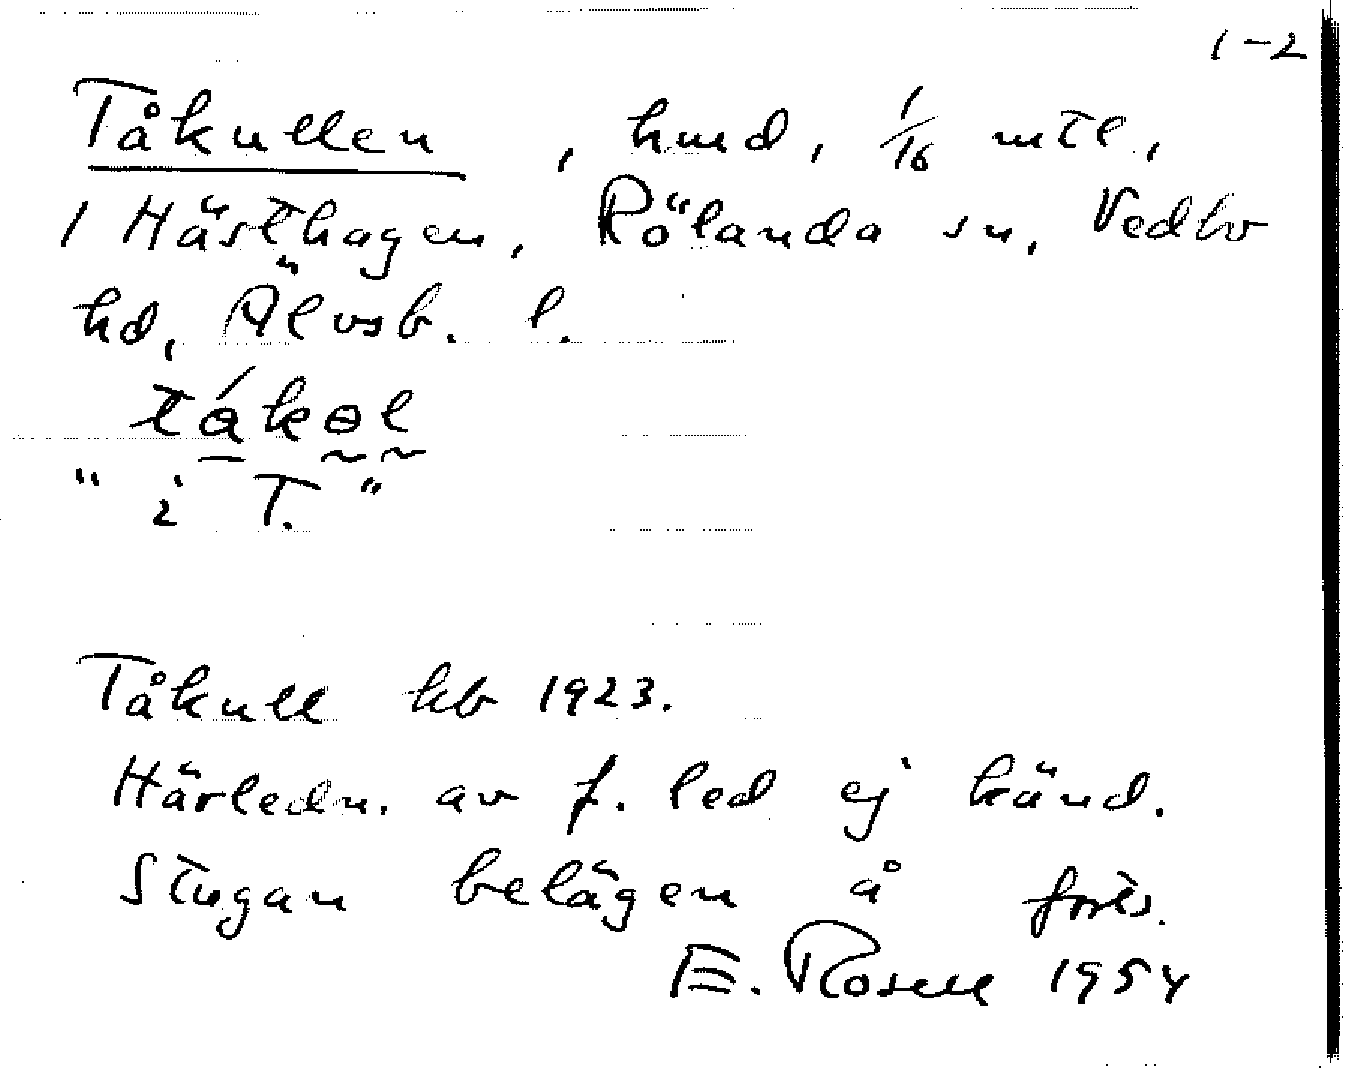 1-2
Tåkullen, hmd, 1/16 mtl,
1 Hästhagen, Rölanda sn, Vedbo
hd, Älvsb. l.
tákəl
" i T. "
Tåkull kb 1923.
Härledn. av f. led ej känd.
Stugan belägen å forts.
E. Rosell 1954